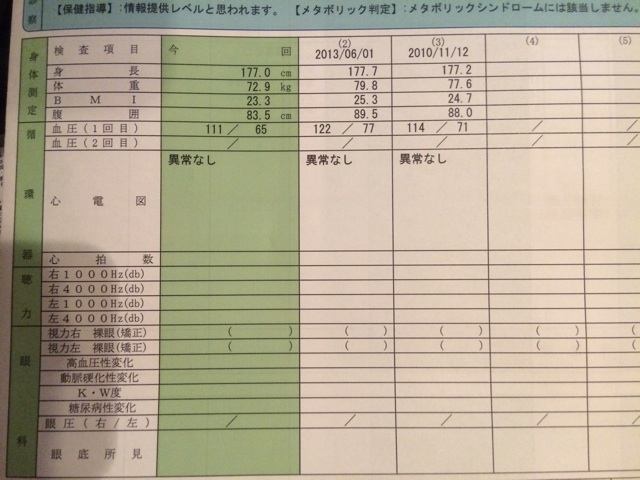 【保健指導】:情報提供レベルと思われます。 【メタボリック判定】:メタボリックシンドロームには該当しません。
診察
検査項目 今回 (2) 2013/06/01 (3) 2010/11/12 (4) (5)
身体測定
身長 177.0 cm 177.7 177.2
体重 72.9 kg 79.8 77.6
BMI 23.3 25.3 24.7
腹囲 83.5 cm 89.5 88.0
循環器
血圧(1回目) 111 / 65 122 / 77 114 / 71 / /
血圧(2回目) / / / / /
心電図 異常なし 異常なし 異常なし
心拍数
聴力
右1000Hz(db)
右4000Hz(db)
左1000Hz(db)
左4000Hz(db)
眼科
視力右 裸眼(矯正) ( ) ( ) ( ) ( ) (
視力左 裸眼(矯正) ( ) ( ) ( ) ( ) (
高血圧性変化
動脈硬化性変化
K・W度
糖尿病性変化
眼圧(右/左) / / / / /
眼底所見